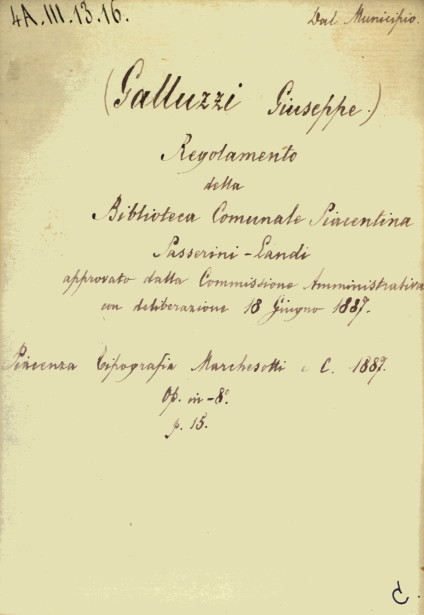 4A.III.13.16.
Dal Municipio.
(Galluzzi Giuseppe.)
Regolamento
della
Biblioteca Comunale Piacentina
Passerini-Landi
approvato dalla Commissione Amministrativa
con deliberazione 18 Giugno 1887.
Piacenza Tipografia Marchesotti e C. 1887.
Op. in-8°.
p. 15.